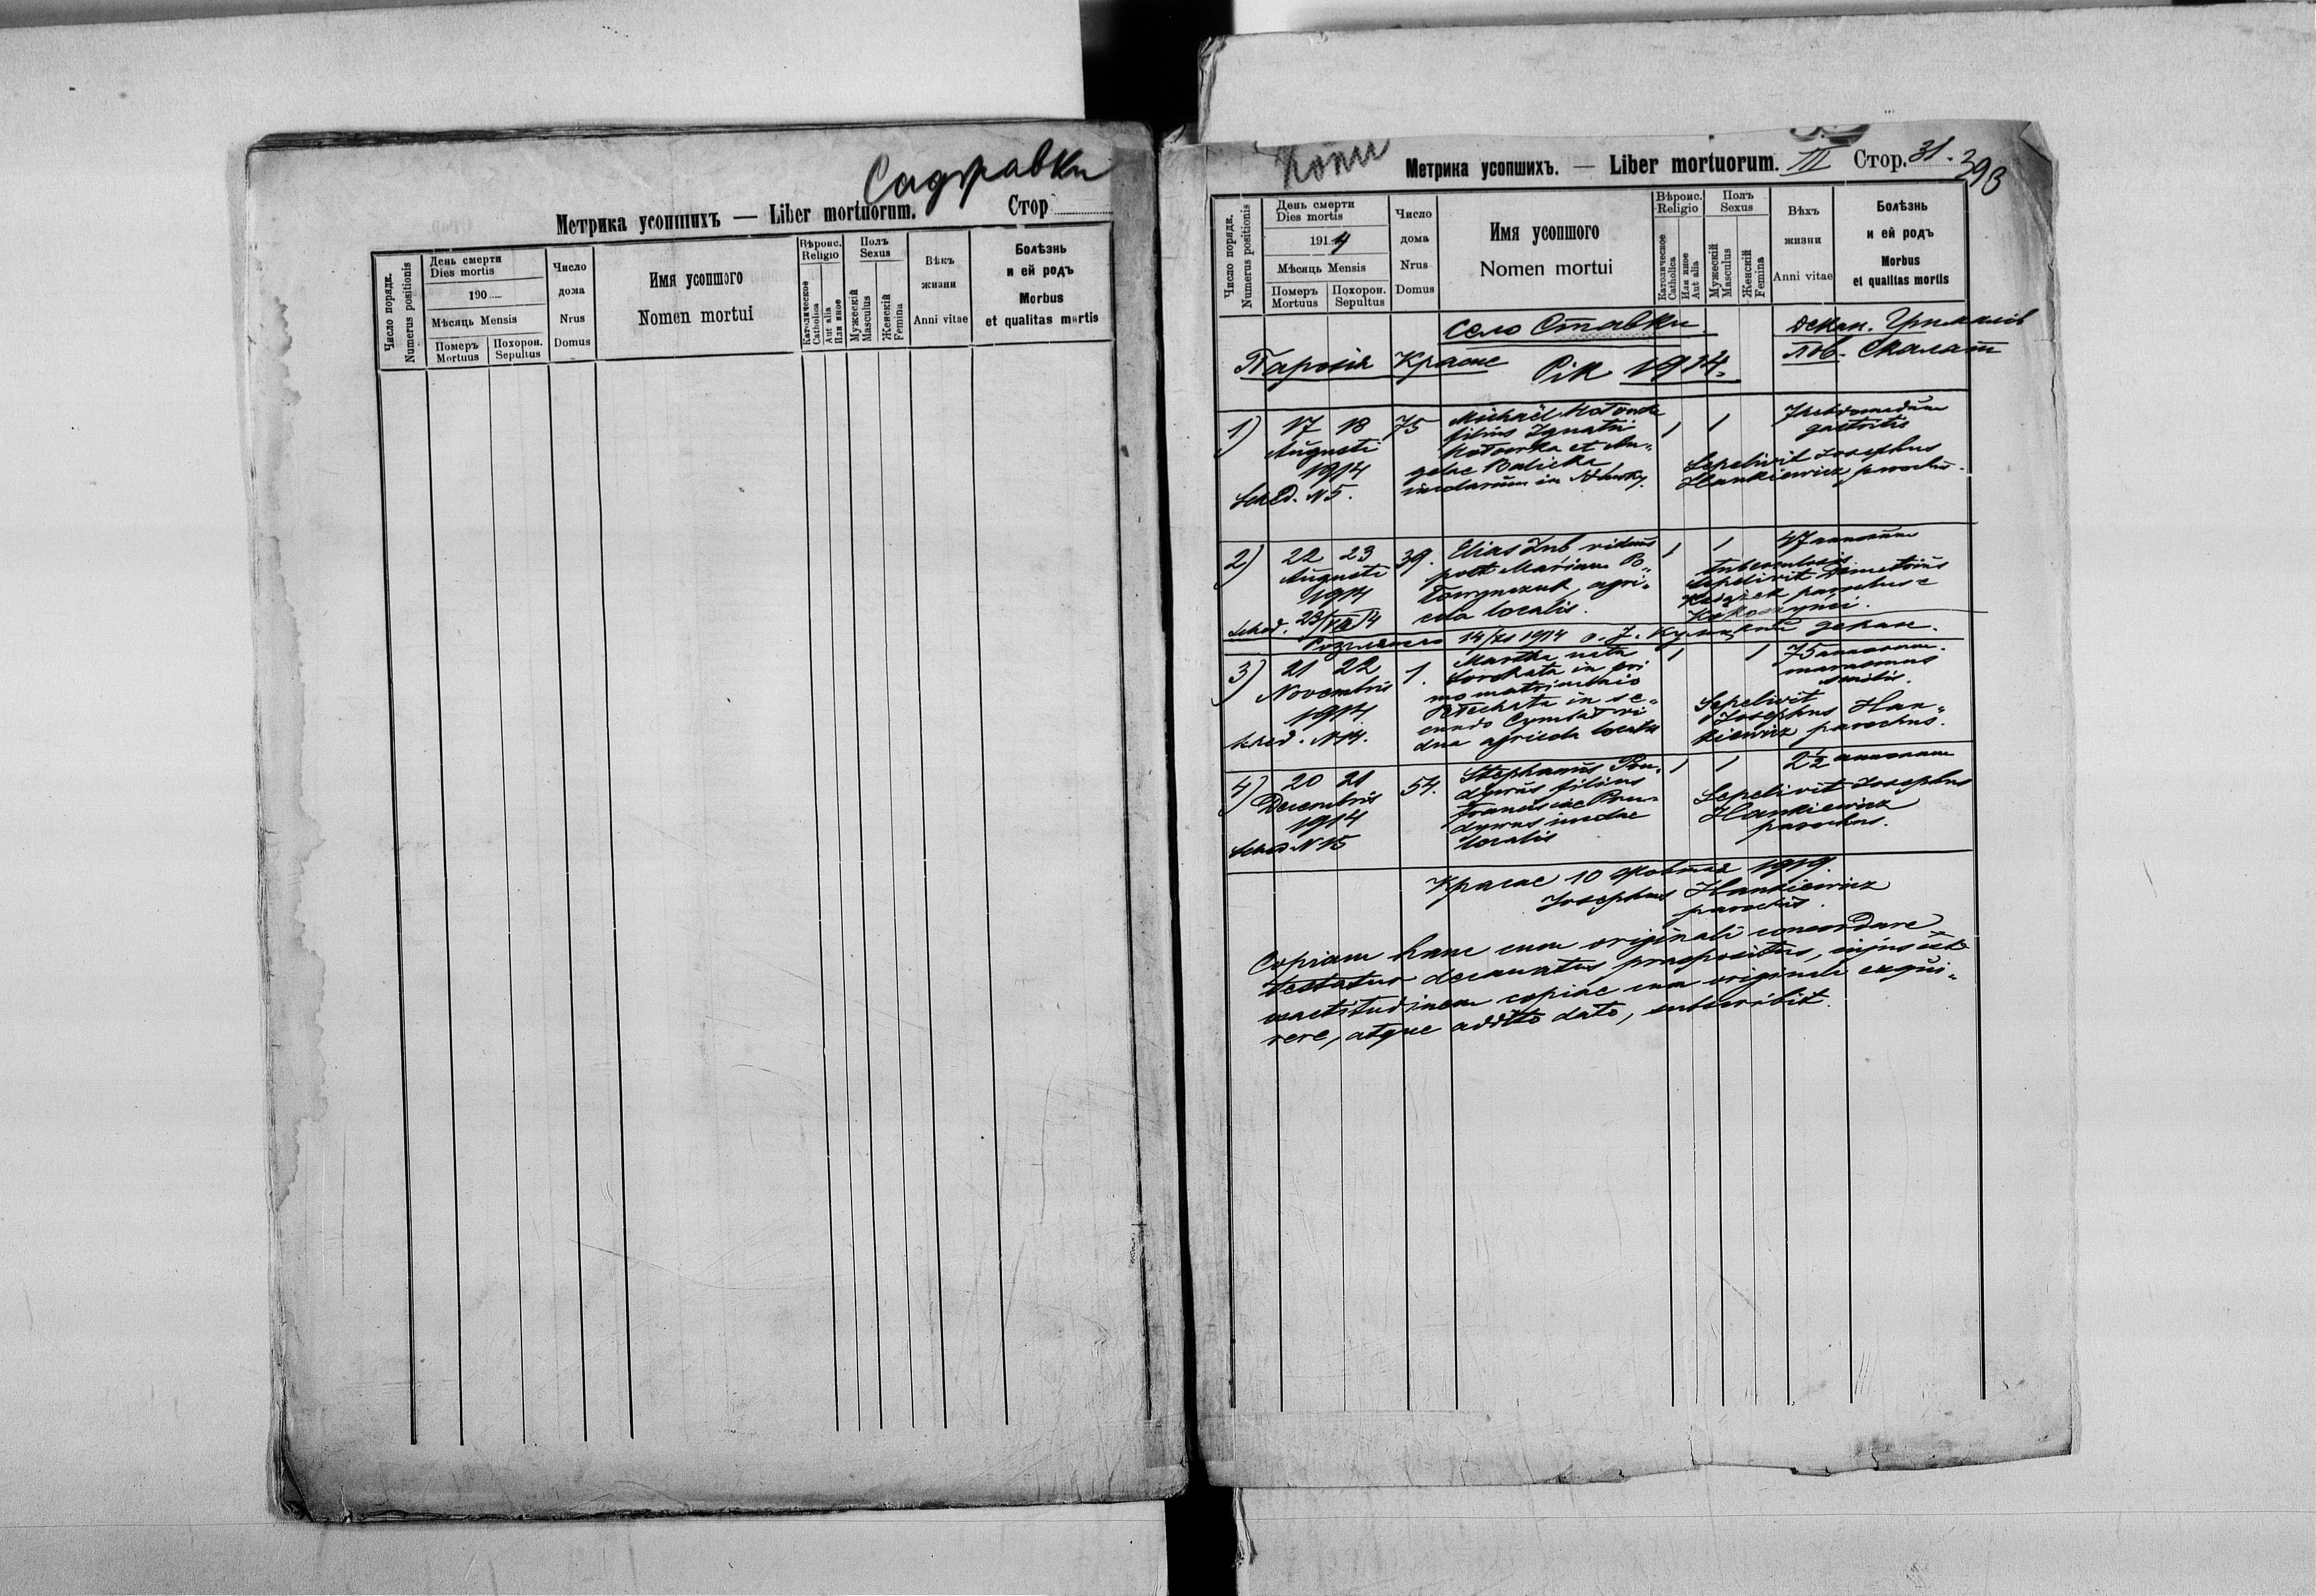 Садравки
Метрика усопшихъ — Liber mortuorum.
Стор
Число порядк.
Numerus positionis
День смерти
Dies mortis
190
Мѣсяць Mensis
Померъ
Mortuus
Похорон.
Sepultus
Число
дома
Nrus
Domus
Имя усопшого
Nomen mortui
Вѣроис.
Religio
Католическое
Catholica
Aut alia
Или иное
Полъ
Sexus
Мужескій
Masculus
Женскій
Femina
Вѣкъ
жизни
Anni vitae
Болѣзнь
и ей родъ
Morbus
et qualitas mortis
Метрика усопшихъ. — Liber mortuorum. II Стор. 31.
393
Число порядк.
Numerus positionis
День смерти
Dies mortis
1914
Мѣсяць Mensis
Померъ
Mortuus
Похорон.
Sepultus
Число
дома
Nrus
Domus
Имя усопшого
Nomen mortui
Вѣроис.
Religio
Католическое
Catholica
Или иное
Aut alia
Полъ
Sexus
Мужескій
Masculus
Женскій
Femina
Вѣхъ
жизни
Anni vitae
Болѣзнь
и ей родъ
Morbus
et qualitas mortis
село Ставки
декан. Грималів
Парохія Красне Рік 1914.
пов. Скалат
1) 17 18 75
Augusti
1914
Sched. N 5.
Michaël
filius Ignatii
et An-
gelae Balicka
1 1
gastritis
Sepelivit Josephus
Hankiewicz parochus.
2) 22 23 39.
Augusti
1914
Sched. 23/VIII 14
Elias Zub viduus
post Mariam
agri-
cola localis.
1 1 47 annorum
tuberculosis
sepelivit Dimetrius
parochus
14/XI 1914 о. декан.
3) 21 22 1.
Novembris
1914.
Sched. N 14.
Martha nata
in pri
mo matrimonio
in se-
cundo Cymbal vi
dua agricola localis
1 1 75 annorum.
marasmus
senilis.
Sepelivit
Josephus Han-
kiewicz parochus.
4) 20 21 54.
Decembris
1914
Sched N 15
Stephanus
filius
Franciscae
localis
1 1 2½ annorum
Sepelivit Josephus
Hankiewicz
parochus.
Красне 10 жовтня 1919.
Josephus Hankiewicz
parochus.
Copiam hanc cum originali concordare
testatur decanatus praepositus, cujus est
exactitudinem copiae cum originali exqui-
rere, atque addito dato, subscribit.